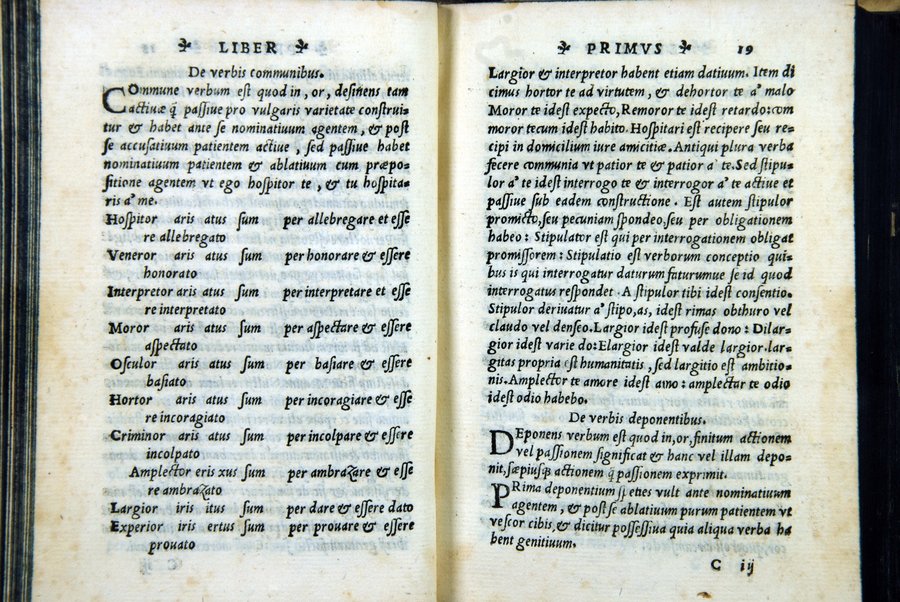 LIBER
De verbis communibus.
COmmune verbum est quod in, or, desinens tam
actiuæ q̃ passiue pro vulgaris varietate construi-
tur & habet ante se nominatiuum agentem, & post
se accusatiuum patientem actiue, sed passiue habet
nominatiuum patientem & ablatiuum cum præpo-
sitione agentem vt ego hospitor te, & tu hospita-
ris a' me.
Hospitor aris atus sum per allebregare et esse
re allebregato
Veneror aris atus sum per honorare & essere
honorato
Interpretor aris atus sum per interpretare et esse
re interpretato
Moror aris atus sum per aspectare & essere
aspectato
Osculor aris atus sum per basiare & essere
basiato
Hortor aris atus sum per incoragiare & esse
re incoragiato
Criminor aris atus sum per incolpare & essere
incolpato
Amplector eris xus sum per ambrazare & esse
re ambrazato
Largior iris itus sum per dare & essere dato
Experior iris ertus sum per prouare & essere
prouato
PRIMVS 19
Largior & interpretor habent etiam datiuum. Item di
cimus hortor te ad virtutem, & dehortor te a' malo
Moror te idest expecto, Remoror te idest retardo: com
moror tecum idest habito. Hospitari est recipere seu re-
cipi in domicilium iure amicitiæ. Antiqui plura verba
fecere communia vt patior te & patior a' te. Sed stipu-
lor a' te idest interrogo te & interrogor a' te actiue et
passiue sub eadem constructione. Est autem stipulor
promitto, seu pecuniam spondeo, seu per obligationem
habeo: Stipulator est qui per interrogationem obligat
promissorem: Stipulatio est verborum conceptio qui-
bus is qui interrogatur daturum facturumue se id quod
interrogatus respondet. A stipulor tibi idest consentio.
Stipulor deriuatur a' stipo, as, idest rimas obthuro vel
claudo vel denseo. Largior idest profuse dono: Dilar-
gior idest varie do: Elargior idest valde largior. lar-
gitas propria est humanitatis, sed largitio est ambitio-
nis. Amplector te amore idest amo: amplectar te odio
idest odio habebo.
De verbis deponentibus.
DEponens verbum est quod in, or, finitum actionem
vel passionem significat & hanc vel illam depo-
nit, sæpiusq; actionem q̃ passionem exprimit.
PRima deponentium species vult ante nominatiuum
agentem, & post se ablatiuum purum patientem vt
vescor cibis, & dicitur possessiua quia aliqua verba ha
bent genitiuum.
C ij